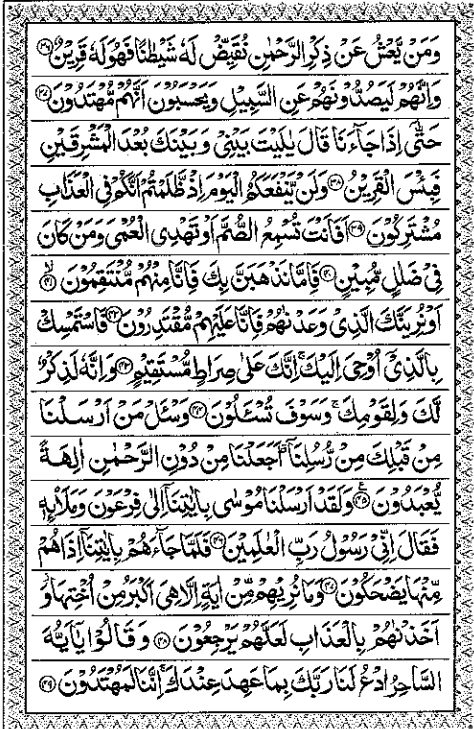 وَمَنْ يَّعْشُ عَنْ ذِكْرِ الرَّحْمٰنِ نُقَيِّضْ لَهٗ شَيْطٰنًا فَهُوَ لَهٗ قَرِيْنٌ ۝۳۶
وَاِنَّهُمْ لَيَصُدُّوْنَهُمْ عَنِ السَّبِيْلِ وَيَحْسَبُوْنَ اَنَّهُمْ مُّهْتَدُوْنَ ۝۳۷
حَتّٰۤى اِذَا جَآءَنَا قَالَ يٰلَيْتَ بَيْنِيْ وَبَيْنَكَ بُعْدَ الْمَشْرِقَيْنِ
فَبِئْسَ الْقَرِيْنُ ۝۳۸ وَلَنْ يَّنْفَعَكُمُ الْيَوْمَ اِذْ ظَّلَمْتُمْ اَنَّكُمْ فِي الْعَذَابِ
مُشْتَرِكُوْنَ ۝۳۹ اَفَاَنْتَ تُسْمِعُ الصُّمَّ اَوْ تَهْدِي الْعُمْيَ وَمَنْ كَانَ
فِيْ ضَلٰلٍ مُّبِيْنٍ ۝۴۰ فَاِمَّا نَذْهَبَنَّ بِكَ فَاِنَّا مِنْهُمْ مُّنْتَقِمُوْنَ ۝۴۱
اَوْ نُرِيَنَّكَ الَّذِيْ وَعَدْنٰهُمْ فَاِنَّا عَلَيْهِمْ مُّقْتَدِرُوْنَ ۝۴۲ فَاسْتَمْسِكْ
بِالَّذِيْۤ اُوْحِيَ اِلَيْكَ ۚ اِنَّكَ عَلٰى صِرَاطٍ مُّسْتَقِيْمٍ ۝۴۳ وَاِنَّهٗ لَذِكْرٌ
لَّكَ وَلِقَوْمِكَ ۚ وَسَوْفَ تُسْـَٔلُوْنَ ۝۴۴ وَسْـَٔلْ مَنْ اَرْسَلْنَا
مِنْ قَبْلِكَ مِنْ رُّسُلِنَاۤ اَجَعَلْنَا مِنْ دُوْنِ الرَّحْمٰنِ اٰلِهَةً
يُّعْبَدُوْنَ ۝۴۵ وَلَقَدْ اَرْسَلْنَا مُوْسٰى بِاٰيٰتِنَاۤ اِلٰى فِرْعَوْنَ وَمَلَا۟ىِٕهٖ
فَقَالَ اِنِّيْ رَسُوْلُ رَبِّ الْعٰلَمِيْنَ ۝۴۶ فَلَمَّا جَآءَهُمْ بِاٰيٰتِنَاۤ اِذَا هُمْ
مِّنْهَا يَضْحَكُوْنَ ۝۴۷ وَمَا نُرِيْهِمْ مِّنْ اٰيَةٍ اِلَّا هِيَ اَكْبَرُ مِنْ اُخْتِهَا وَ
اَخَذْنٰهُمْ بِالْعَذَابِ لَعَلَّهُمْ يَرْجِعُوْنَ ۝۴۸ وَقَالُوْا يٰۤاَيُّهَ
السّٰحِرُ ادْعُ لَنَا رَبَّكَ بِمَا عَهِدَ عِنْدَكَ ۚ اِنَّنَا لَمُهْتَدُوْنَ ۝۴۹